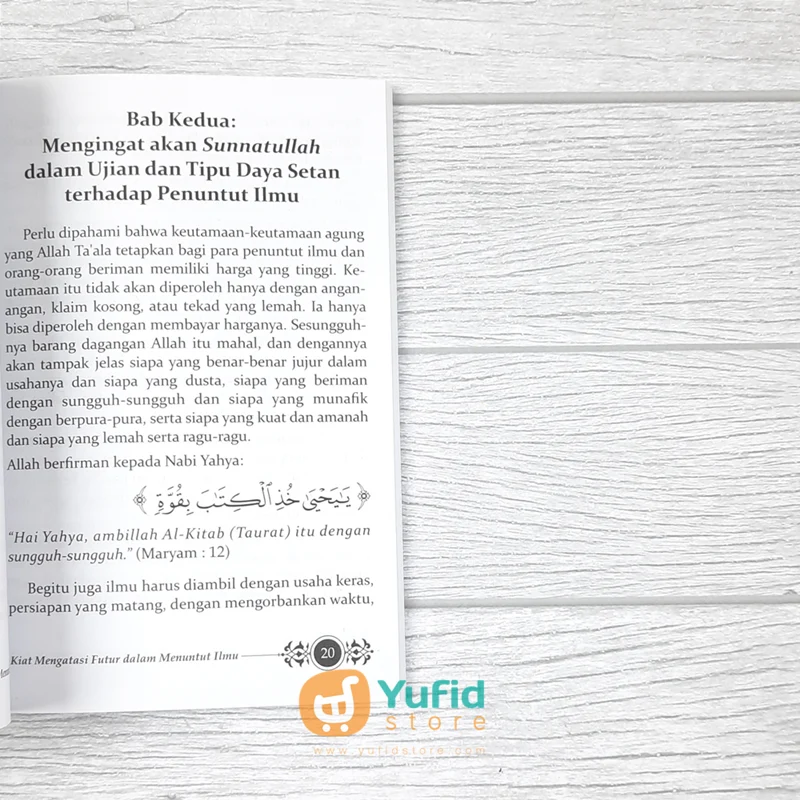 Bab Kedua:
Mengingat akan Sunnatullah
dalam Ujian dan Tipu Daya Setan
terhadap Penuntut Ilmu
Perlu dipahami bahwa keutamaan-keutamaan agung
yang Allah Ta'ala tetapkan bagi para penuntut ilmu dan
orang-orang beriman memiliki harga yang tinggi. Ke-
utamaan itu tidak akan diperoleh hanya dengan angan-
angan, klaim kosong, atau tekad yang lemah. Ia hanya
bisa diperoleh dengan membayar harganya. Sesungguh-
nya barang dagangan Allah itu mahal, dan dengannya
akan tampak jelas siapa yang benar-benar jujur dalam
usahanya dan siapa yang dusta, siapa yang beriman
dengan sungguh-sungguh dan siapa yang munafik
dengan berpura-pura, serta siapa yang kuat dan amanah
dan siapa yang lemah serta ragu-ragu.
Allah berfirman kepada Nabi Yahya:
﴿ يَـٰيَحْيَىٰ خُذِ ٱلْكِتَـٰبَ بِقُوَّةٍۢ ﴾
“Hai Yahya, ambillah Al-Kitab (Taurat) itu dengan
sungguh-sungguh.” (Maryam : 12)
Begitu juga ilmu harus diambil dengan usaha keras,
persiapan yang matang, dengan mengorbankan waktu,
Kiat Mengatasi Futur dalam Menuntut Ilmu 20
Yufid
store
www.yufidstore.com